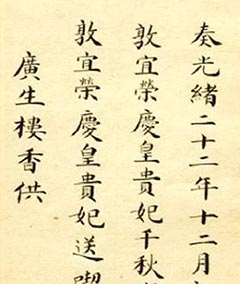 奏光緒二十二年十二月
敦宜榮慶皇貴妃千秋
敦宜榮慶皇貴妃送
廣生樓香供